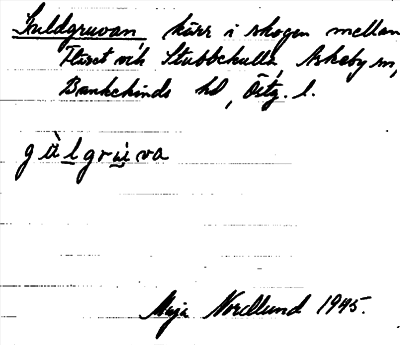 Guldgruvan kärr i skogen mellan
Huset och Stubbekulla, Askeby sn,
Bankekinds hd, Östg. l.
gùlgrùva
Maja Nordlund 1945.